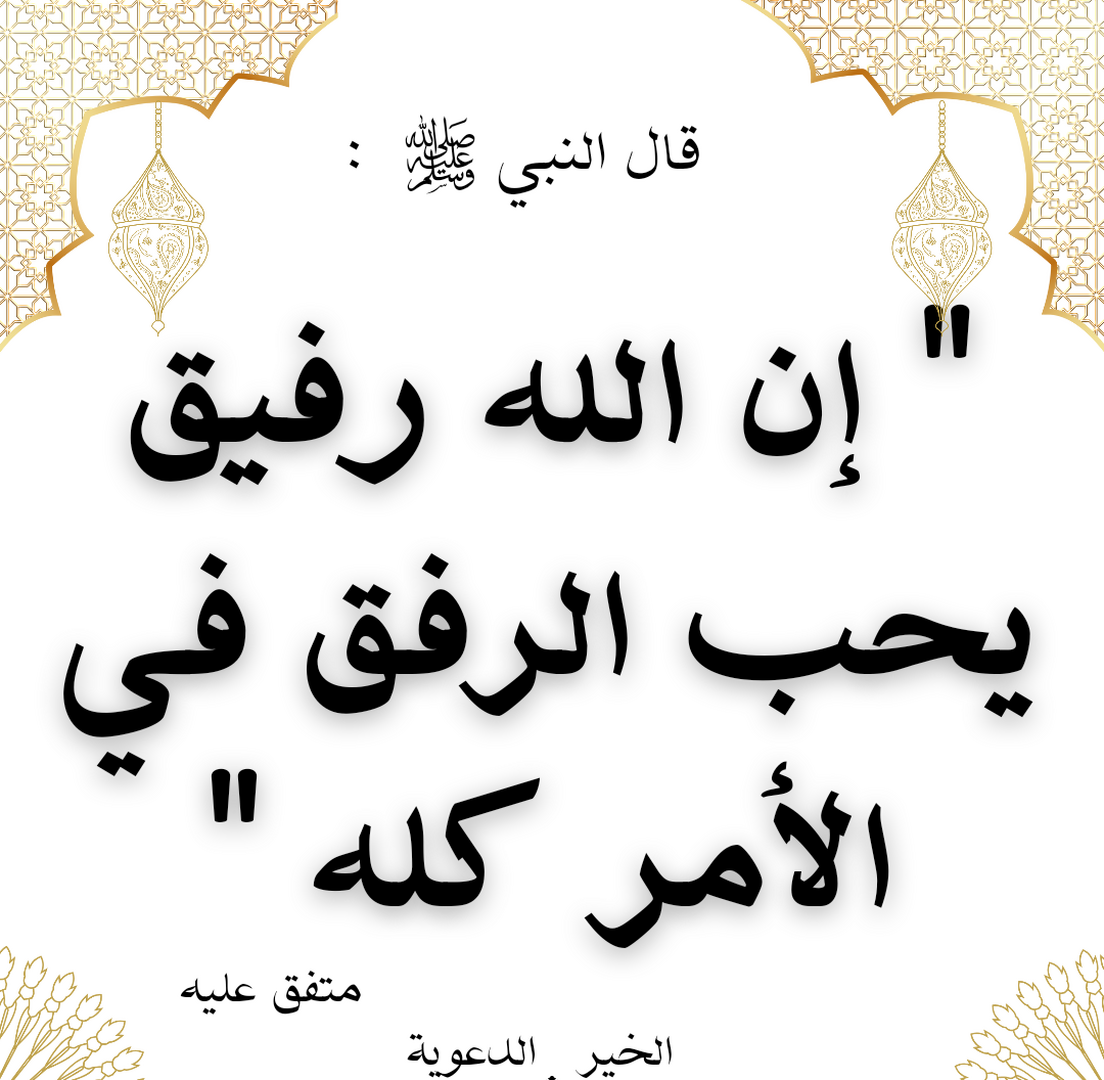 قال النبي ﷺ :
" إن الله رفيق
يحب الرفق في
الأمر كله "
متفق عليه
الخير الدعوية